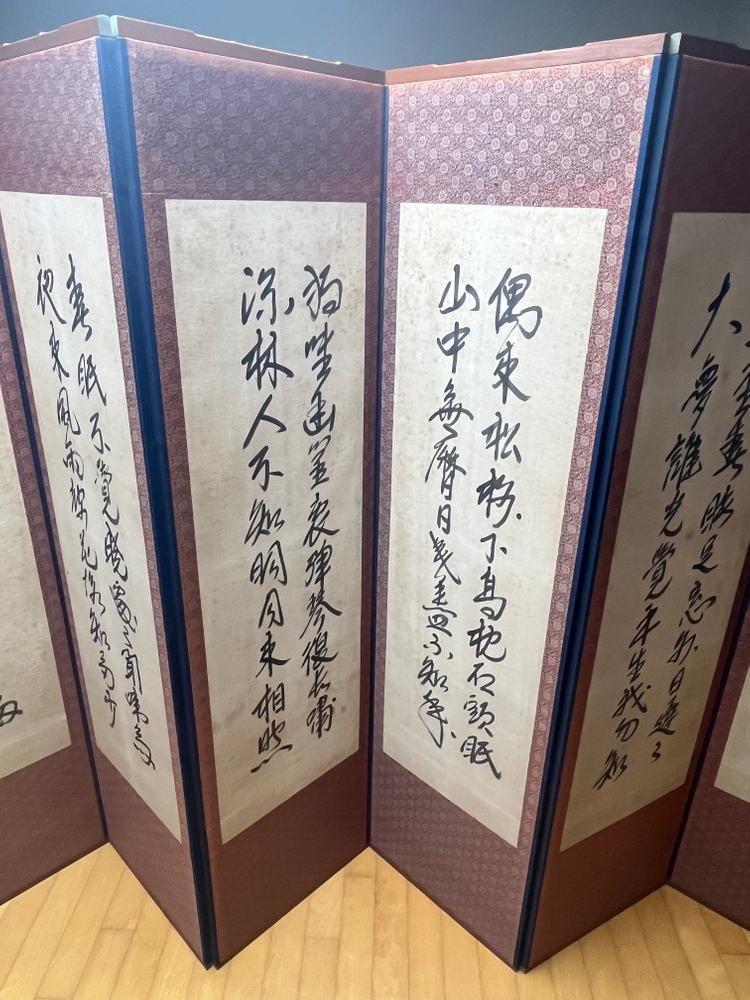 堂春睡足窓外日遲々
大夢誰先覺平生我自知
偶來松樹下高枕石頭眠
山中無曆日寒盡不知年
獨坐幽篁裏彈琴復長嘯
深林人不知明月來相照
春眠不覺曉處々聞啼鳥
夜來風雨聲花落知多少